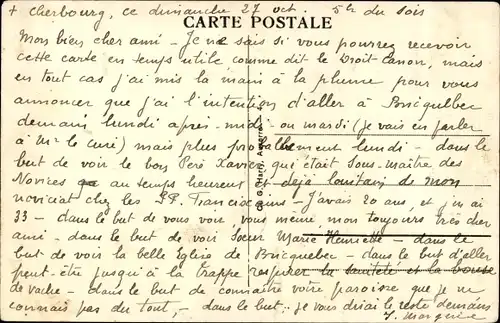 + Cherbourg, ce dimanche 27 oct. 5h du soir
CARTE POSTALE
Mon bien cher ami - Je ne sais si vous pourrez recevoir
cette carte en temps utile comme dit le Droit Canon, mais
en tout cas j'ai mis la main à la plume pour vous
annoncer que j'ai l'intention d'aller à Bricquebec
demain lundi après-midi - ou mardi (je vais en parler
à Mr le curé) mais plus probablement lundi - dans le
but de voir le bon Père Xavier, qui était Sous-Maître des
Novices au temps heureux et déjà lointain de mon
noviciat chez les P.P. Franciscains - J'avais 20 ans, et j'en ai
33 - dans le but de vous voir, vous même, mon toujours très cher
ami - dans le but de voir Soeur Marie Henriette - dans le
but de voir la belle Eglise de Bricquebec - dans le but d'aller
peut-être jusqu'à la trappe respirer la sainteté et la bouse
de vache - dans le but de connaître votre paroisse que je ne
connais pas du tout, - dans le but... je vous dirai le reste demain